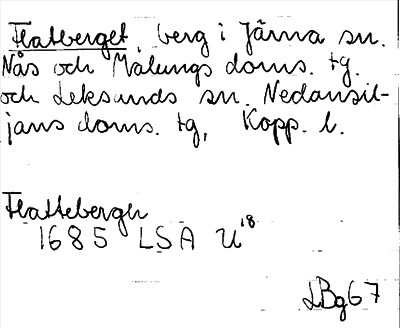 Flatberget, berg i Järna sn.
Nås och Malungs doms. tg.
och Leksands sn. Nedansil-
jans doms. tg, Kopp. l.
Flattebergh
1685 LSA U18
LBg67